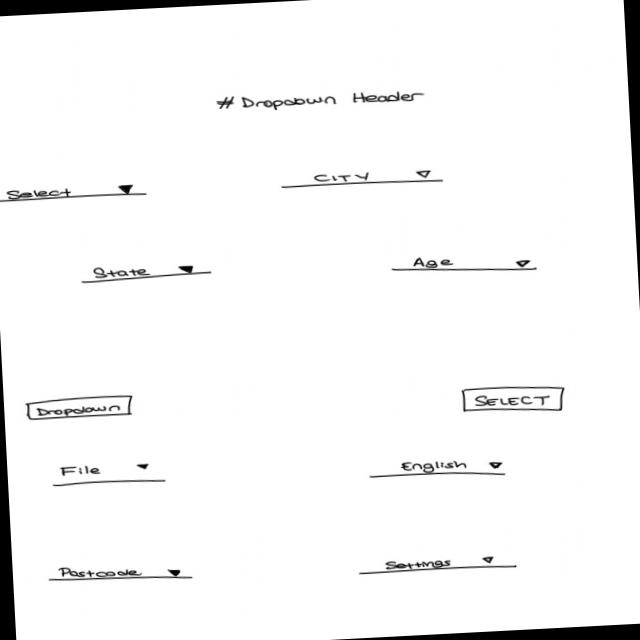 # Dropdown Header
Select
CITY
State
Age
Dropdown
SELECT
File
English
Postcode
Settings